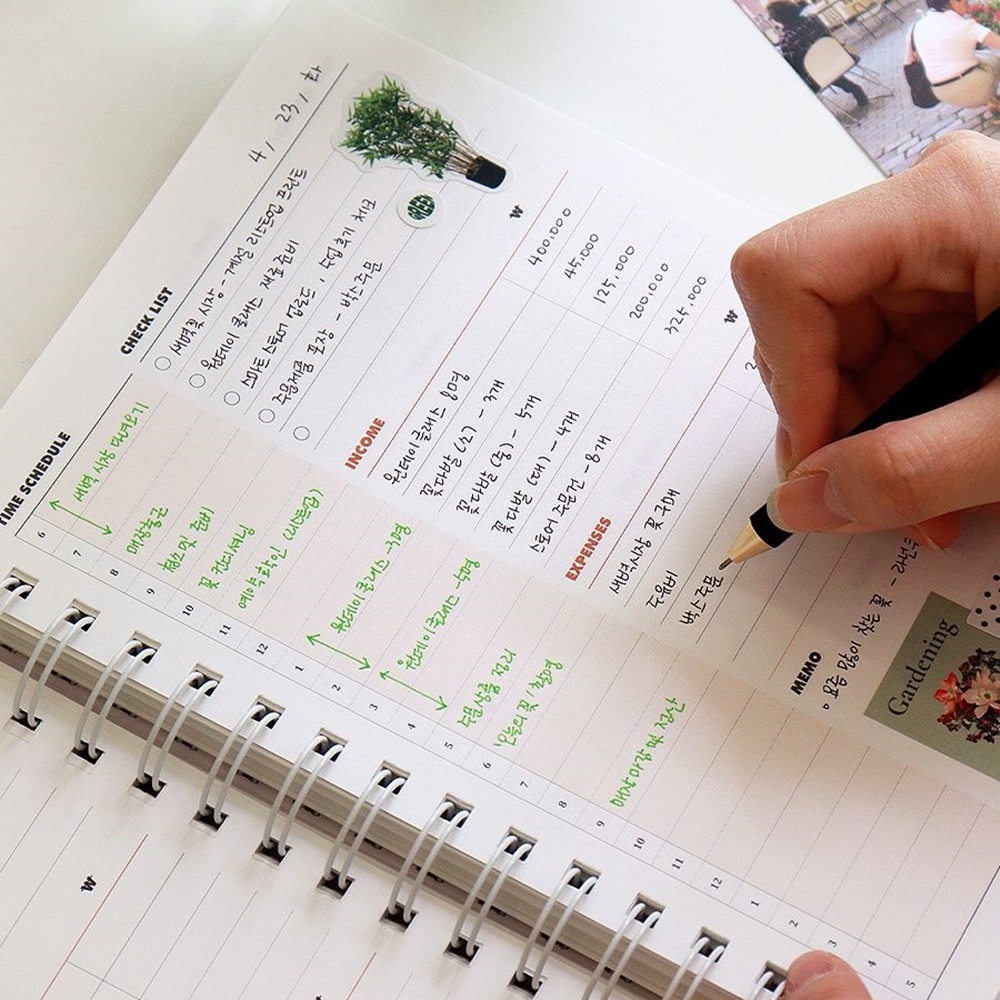 4 / 23 / 화
CHECK LIST
새벽꽃시장 - 계절 리스트업 프린트
원데이 클래스 재료준비
인스타 리스트 업로드, 후기 체크
주문제품 포장 - 박스주문
GREEN
INCOME
₩
원데이클래스 8명
400,000
꽃다발 (소) - 3개
45,000
꽃다발 (중) - 5개
125,000
꽃다발 (대) - 4개
200,000
스토어 주문건 - 8개
325,000
EXPENSES
₩
새벽시장 꽃구매
2
주유비
박스주문
MEMO
요즘 많이 찾는 꽃 -
Gardening
TIME SCHEDULE
6
새벽 시장 다녀오기
7
8
매장출근
9
청소 및 준비
10
꽃 컨디셔닝
11
예약확인 (리스트업)
12
1
원데이클래스 - 3명
2
3
원데이클래스 - 5명
4
5
주문상품 정리
6
오늘의 꽃 / 촬영
7
8
9
매장마감 및 정산
10
11
12
1
2
3
4
5
₩